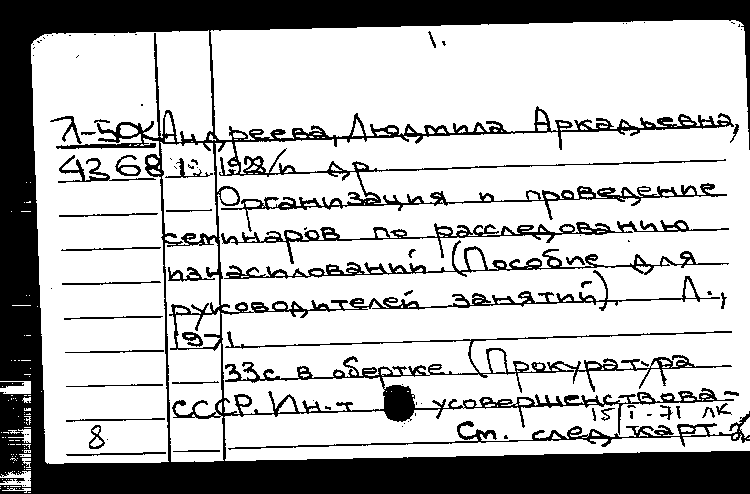 1.
Л-50К Андреева, Людмила Аркадьевна,
4368 1928/и др.
Организация и проведение
семинаров по расследованию
изнасилований. (Пособие для
руководителей занятий). Л.,
1971.
33с в обертке. (Прокуратура
СССР. Ин-т усовершенствова-
15/I-71 ЛК
8 См. след. карт.